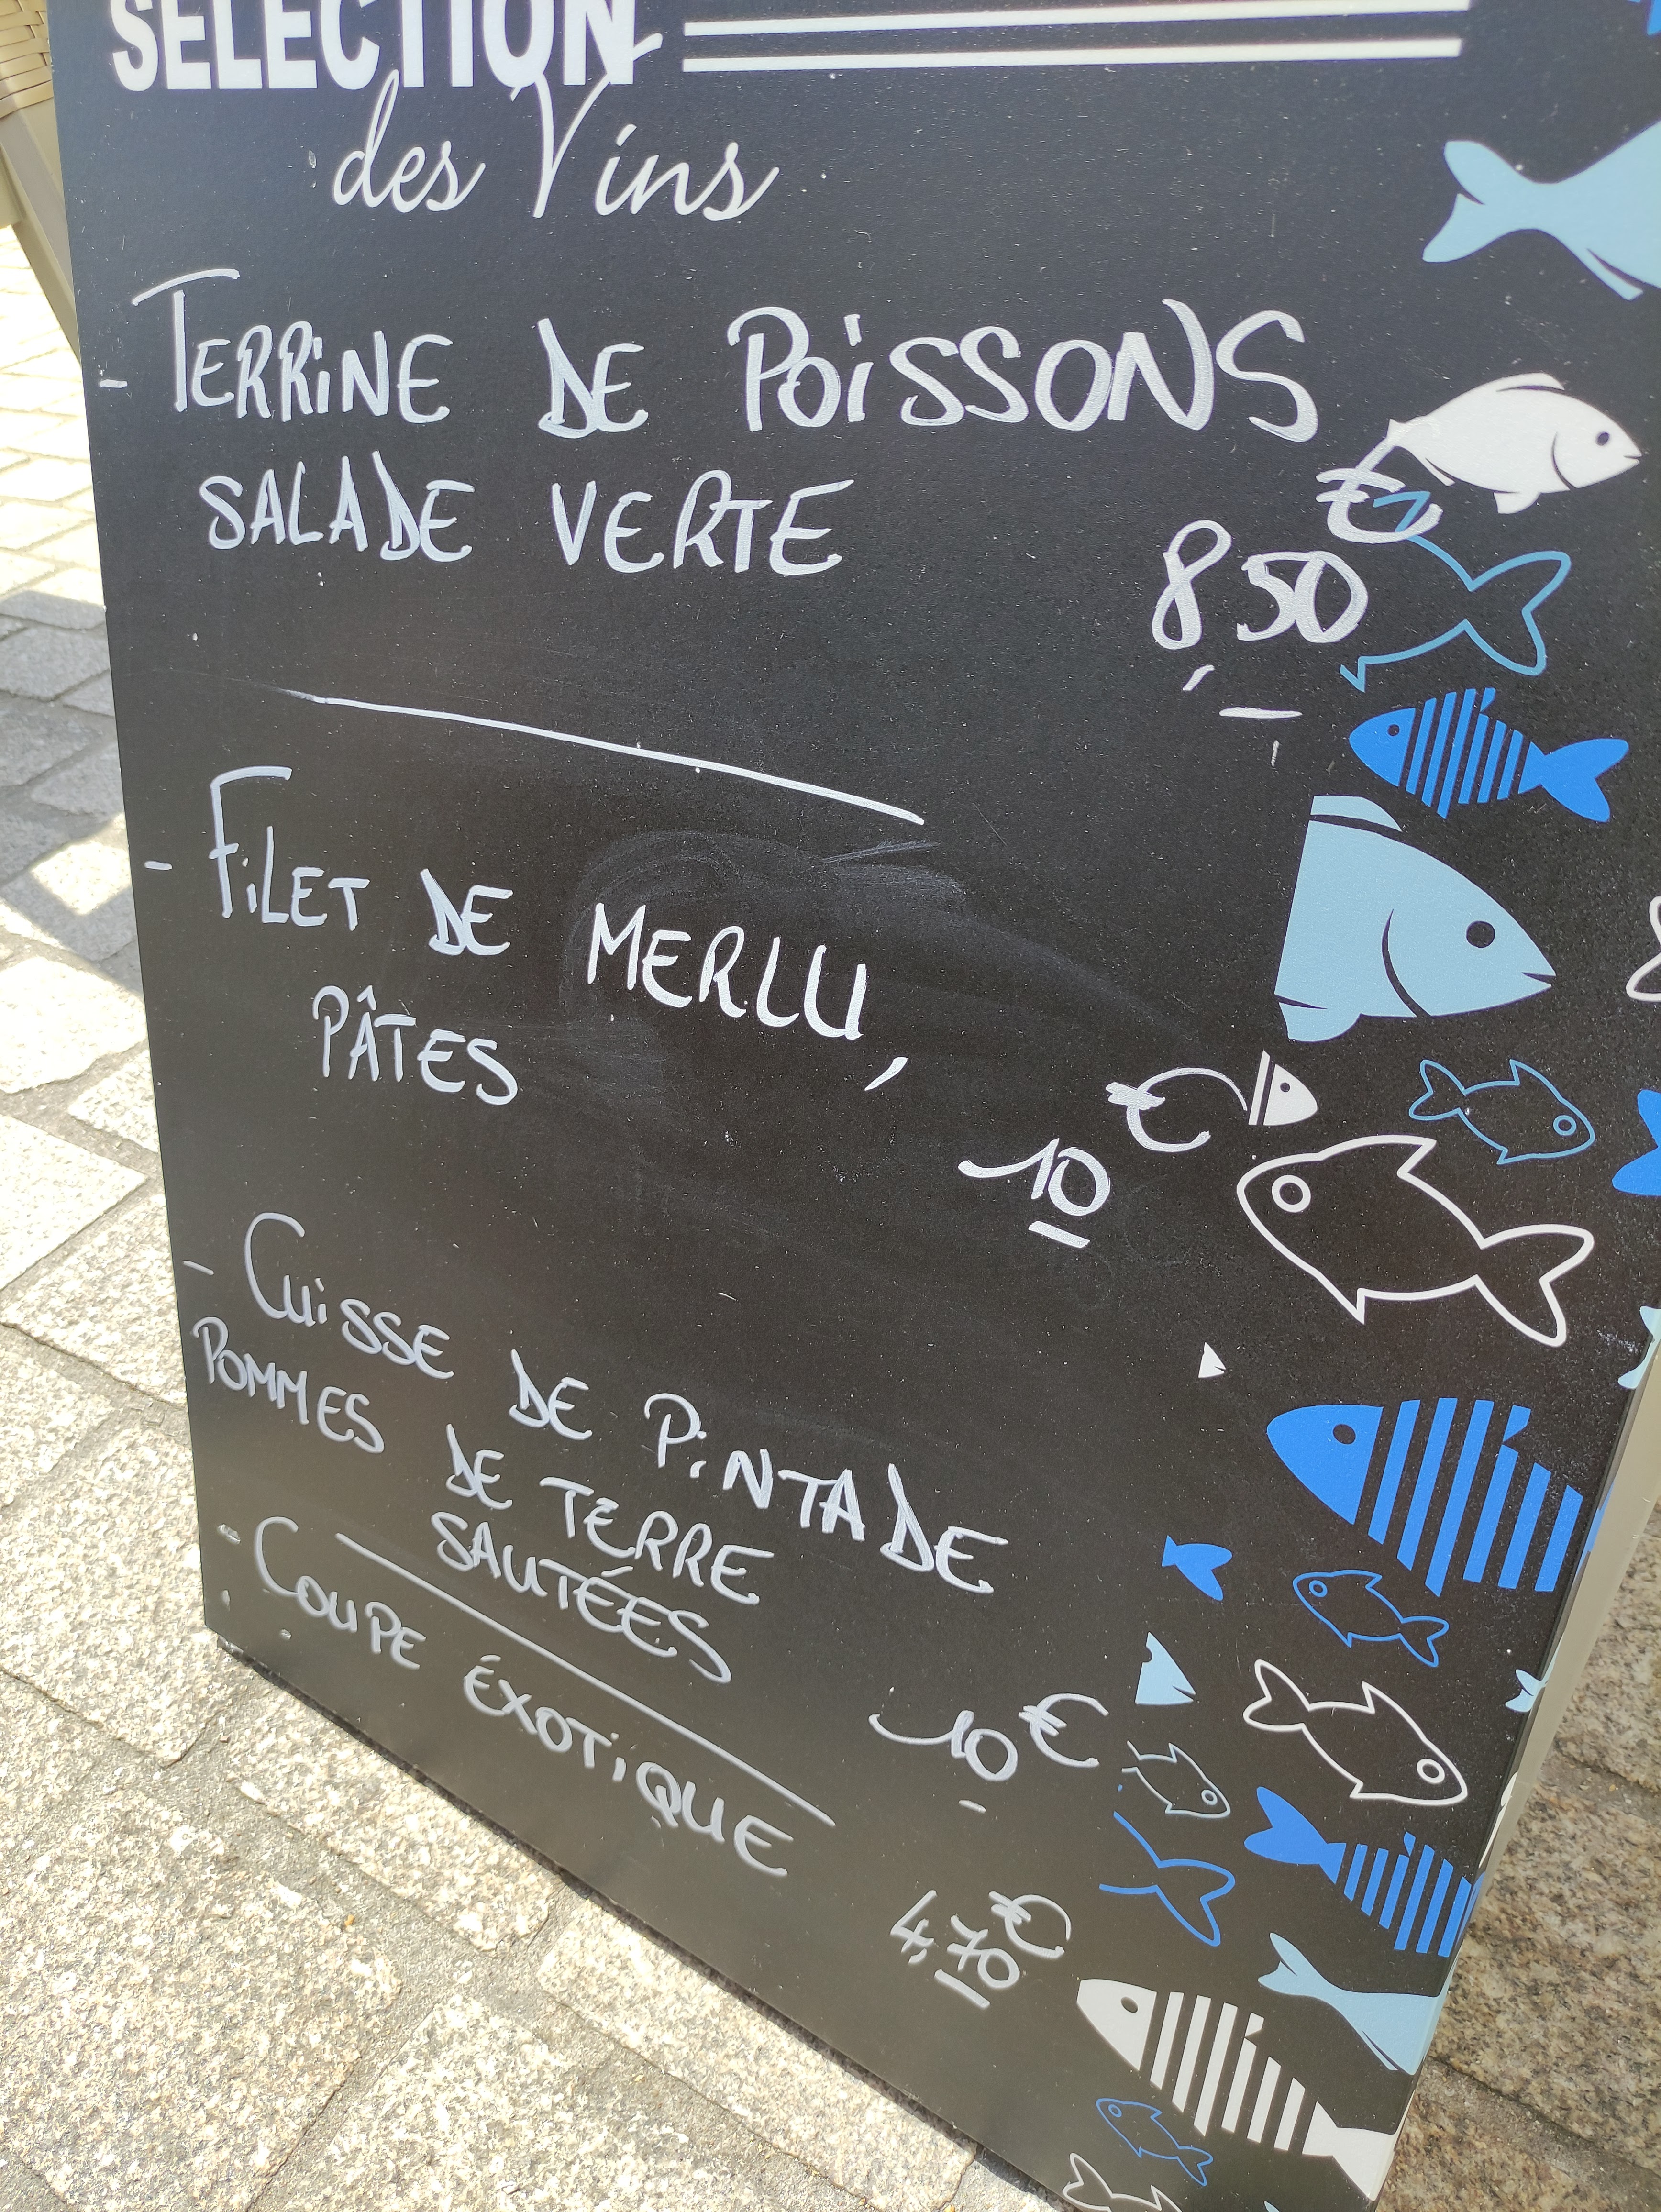 SÉLECTION
des Vins
- TERRINE DE POISSONS
SALADE VERTE
8,50 €
- FILET DE MERLU,
PÂTES
10 €
- CUISSE DE PINTADE
POMMES DE TERRE
SAUTÉES
10 €
- COUPE ÉXOTIQUE
4,70 €